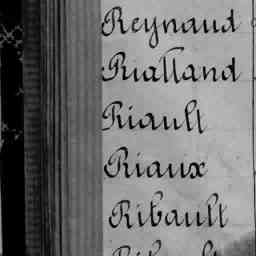 Reynaud
Rialland
Riault
Riaux
Ribault